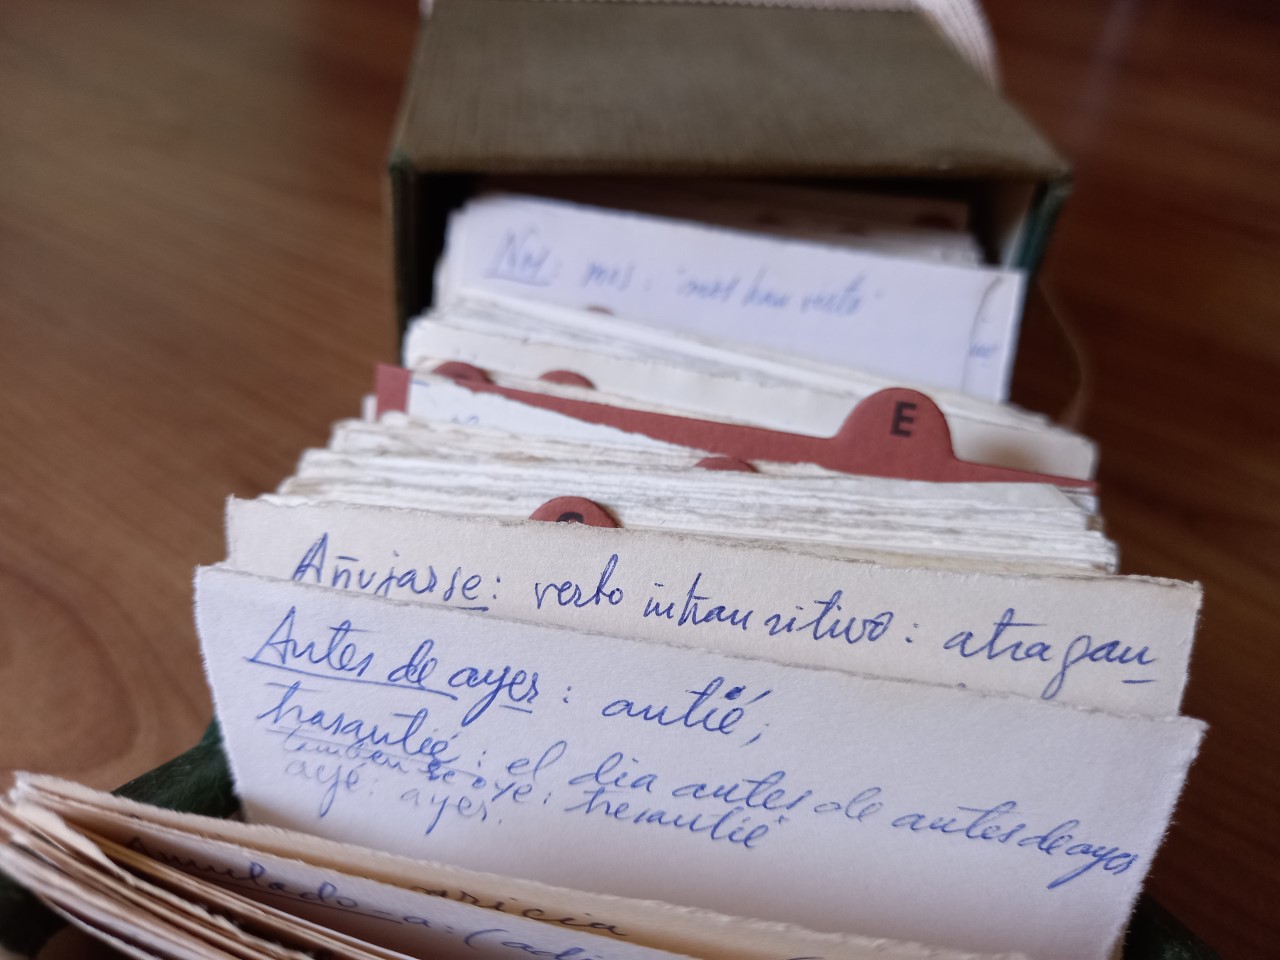 Nos: mos: "mos han visto"
E
Añujarse: verbo intransitivo: atragan
Antes de ayer: antié;
trasantié: el dia antes de antes de ayer
también se oye: tresantié
ayé: ayer.
aricia
Amulado-a: (adj